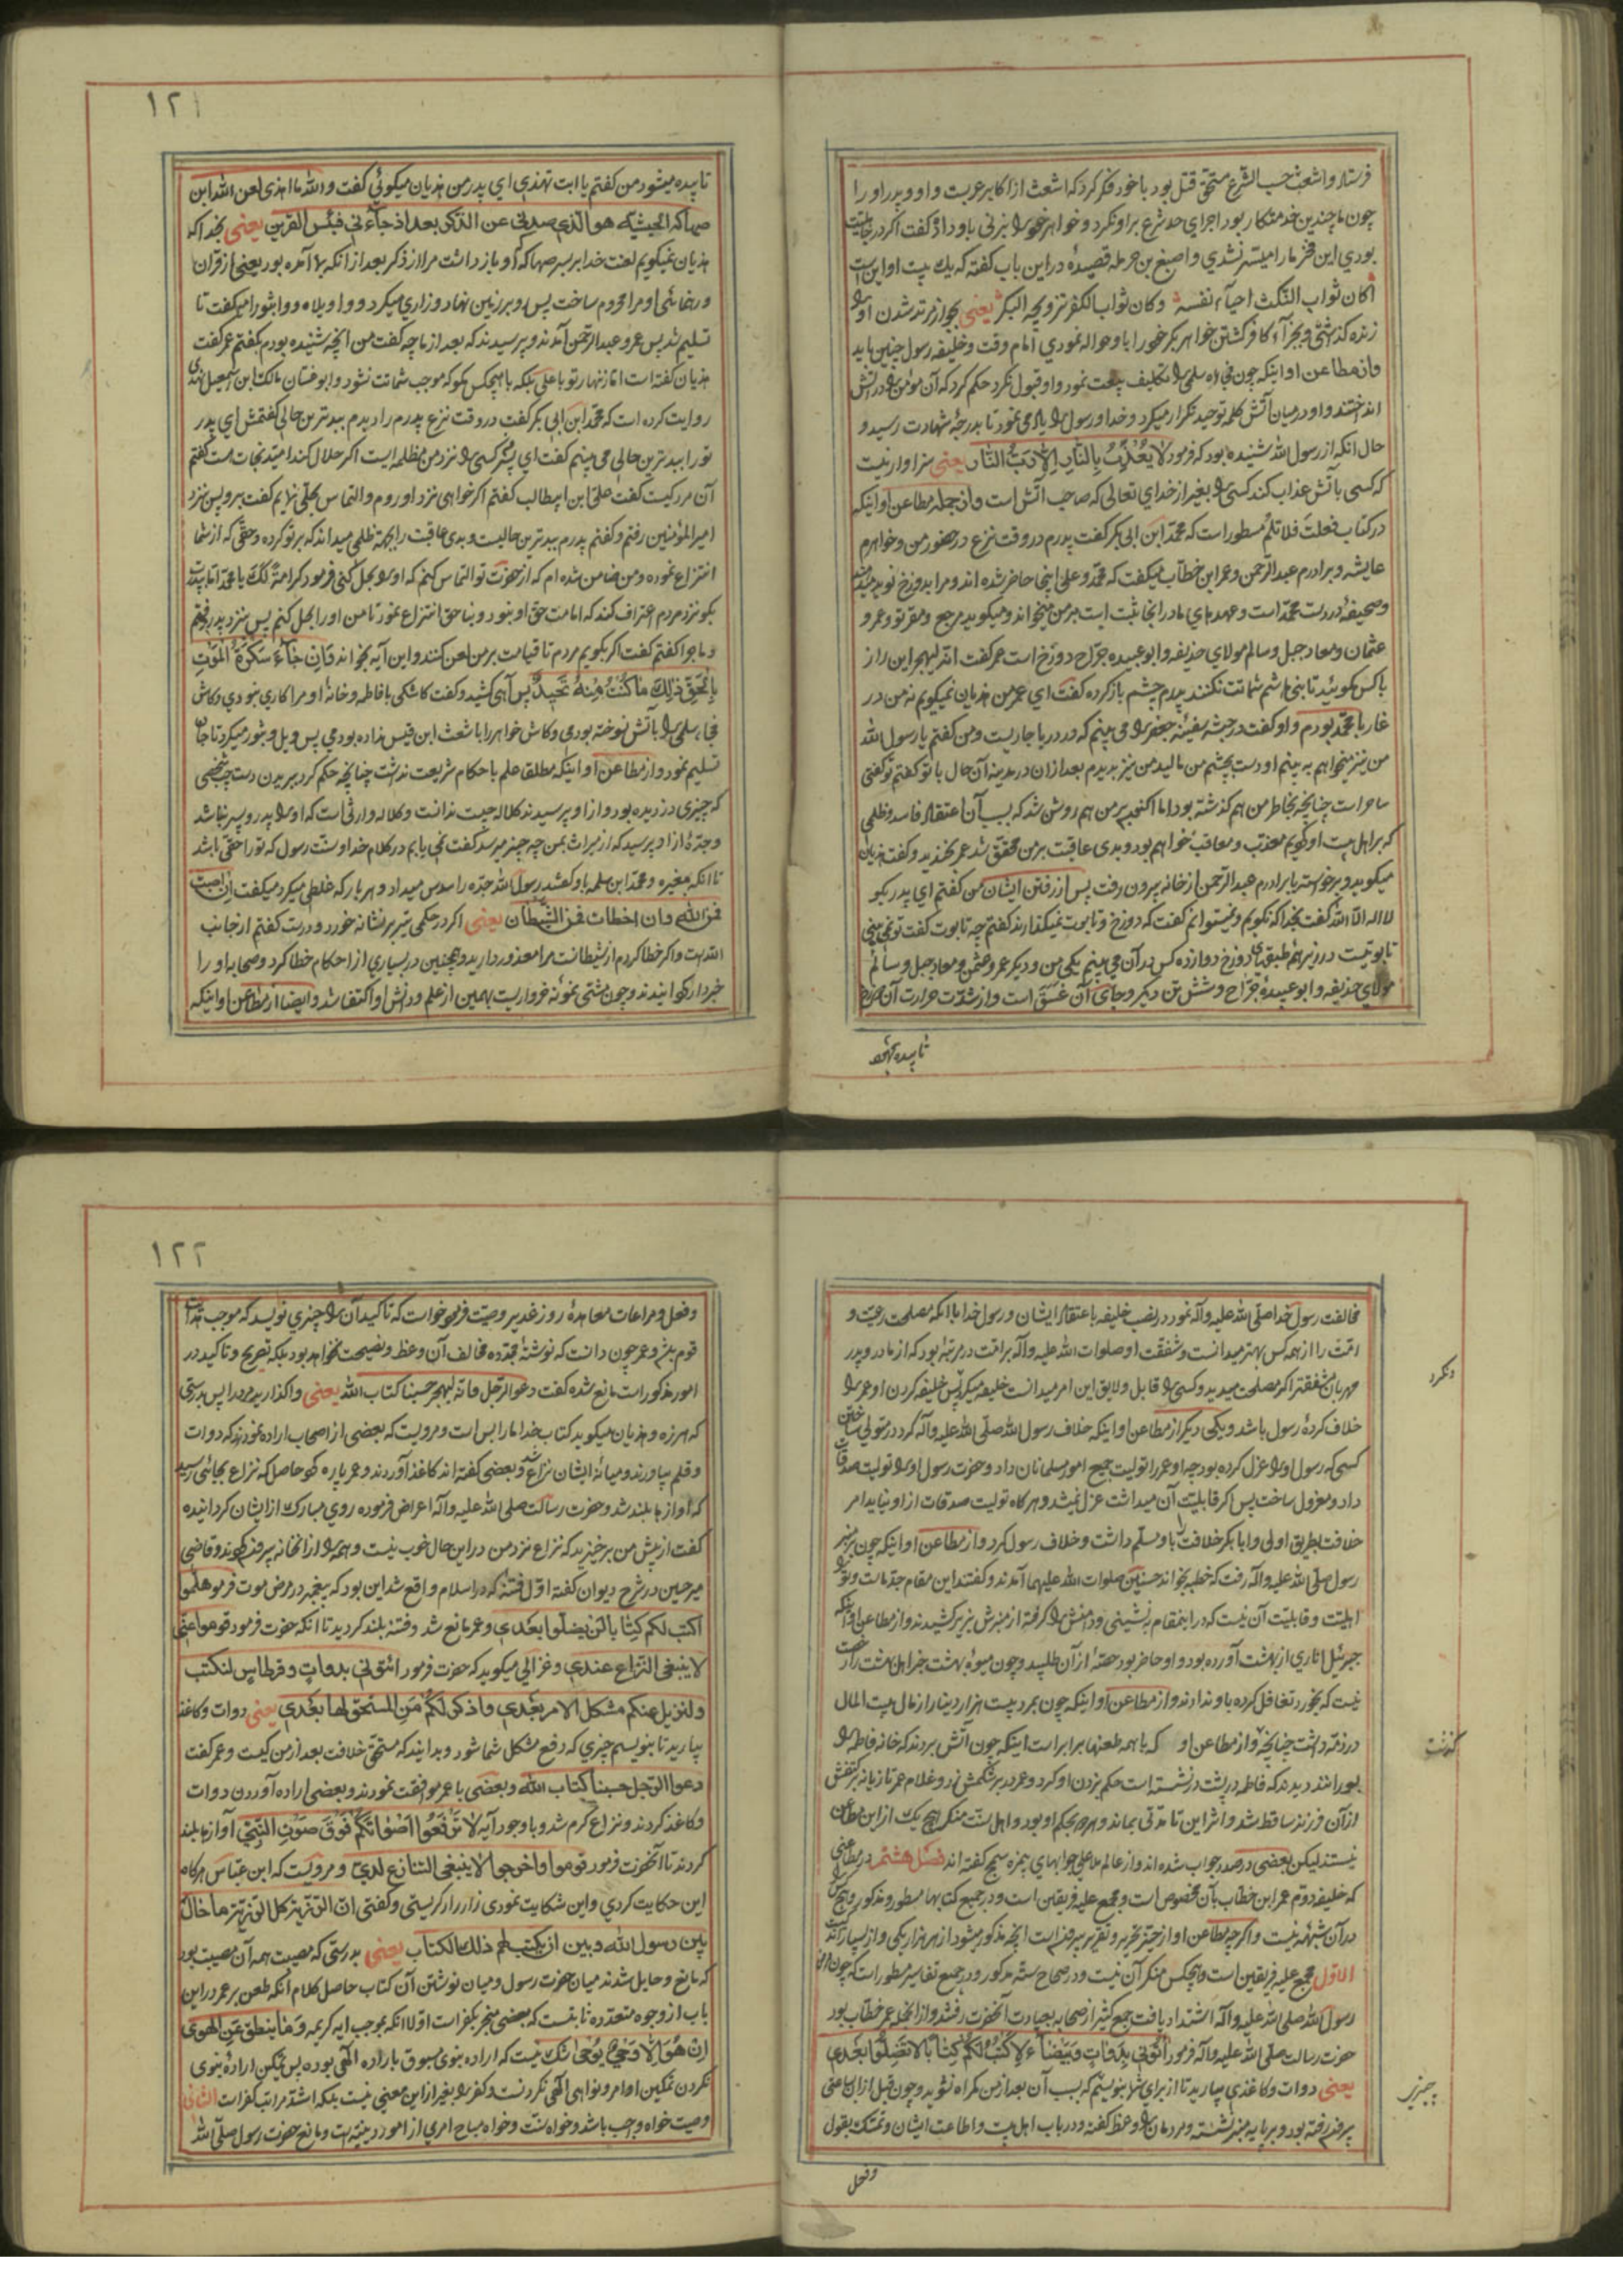 فرستاد واشعث حسب الشرع مستحق قتل بود با خود فکر کرد که اشعث از اکابر عربست واو وپدر او را
چون ما چندین خدمتکار بود اجرای حد شرع بر او نکرد وخواهر خود را بزنی باو داد وگفت اکر در جاهلیت
بودی این فخر مارا میسر نشدی واصبغ بن حرمله قصیدهٔ در این باب کفته که یک بیت او این است
اکان ثواب النکث احیآء نفسه وکان ثواب الکفر تزویجه البکر یعنی
زنده کذاشتی وبجزآء کافر کشتن خواهر بکر خود را باو حواله نمودی امام وقت وخلیفه رسول چنین باید
واز مطاعن او اینکه چون فجاه سلمی را تکلیف بیعت نمود واو قبول نکرد حکم کرد که آن مؤمن را در آتش
انداختند واو در میان آتش کلمه توحید تکرار میکرد وخدا ورسول را یاد می نمود تا بدرجهٔ شهادت رسید و
حال انکه از رسول الله شنیده بود که فرمود لا یعذب بالنار الا رب النار یعنی سزاوار نیست
که کسی بآتش عذاب کند کسی را بغیر از خدای تعالی که صاحب آتش است واز جمله مطاعن او اینکه
در کتاب فعلت فلا تلم مسطور است که محمد ابن ابی بکر کفت پدرم در وقت نزع در حضور من وخواهرم
عایشه وبرادرم عبدالرحمن وعمر ابن خطاب میکفت که محمد وعلی اینجا حاضر شده اند ومرا بدوزخ نوید میدهند
وصحیفهٔ در دست محمد است وعهدهای ما در انجا ثبت است بر من میخواند ومیکوید مرجع ومقر تو وعمر و
عثمان ومعاد جبل وسالم مولای حذیفه وابو عبیده جراح دوزخ است عمر کفت انه لیهجر این راز
با کس مکوئید تا بنی هاشم شماتت نکنند پدرم چشم باز کرده کفت ای عمر من هذیان نمیکویم نه من در
غار با محمد بودم واو کفت در حبشه سفینه جعفر را می بینم که در دریا جاریست ومن کفتم یا رسول الله
من نیز میخواهم به بینم او دست بچشم من مالید من نیز بدیدم بعد از ان در مدینه آن حال با تو کفتم تو کفتی
ساحر است چنانچه بخاطر من هم کذشته بود اما اکنون بر من هم روشن شد که بسبب آن اعتقاد فاسد وظلمی
که بر اهل بیت او کردیم معذب ومعاقب خواهم بود وبدی عاقبت بر من محقق شد عمر بخندید وکفت هذیان
میکوید وبرخواسته با برادرم عبدالرحمن از خانه بیرون رفت پس از رفتن ایشان من کفتم ای پدر بکو
لا اله الا الله کفت بخدا که نکویم ونمیتوانم کفت که دوزخ وتابوت نمیکذارند کفتم چه تابوت کفت تو نمی بینی
تابوتیست در زیر همه طبقهای دوزخ دوازده کس در آن می بینم یکی من ودیکر عمر وعثمن ومعاد جبل وسالم
مولای حذیفه وابو عبیدهٔ جراح وشش تن دیکر وجای آن غسق است واز شدت حرارت آن
١٢١
تابیده میشود من کفتم یا ابت تهذی ای پدر من هذیان میکوئی کفت والله ما اهذی لعن الله ابن
صهاک الحبشیة هو الذی صدنی عن الذکر بعد اذ جاءنی فبئس القرین یعنی بخدا که
هذیان نمیکویم لعنت خدا بر پسر صهاک که او باز داشت مرا از ذکر بعد از انکه بما آمده بود یعنی از قران
ورهنمائی او مرا محروم ساخت پس رو بر زمین نهاد وزاری میکرد وواویلاه وواثبورا میکفت تا
تسلیم شد پس عمر وعبدالرحمن آمدند وپرسیدند که بعد از ما چه کفت من انچه شنیده بودم بکفتم عمر کفت
هذیان کفته است اما زنهار تو با علی بلکه با هیچکس مکو که موجب شماتت نشود وابو غسان مالک ابن اسمعیل نهدی
روایت کرده است که محمد ابن ابی بکر کفت در وقت نزع پدرم را دیدم ببدترین حالی کفتمش ای پدر
تو را ببدترین حالی می بینم کفت ای پسر کسی را نزد من مظلمه ایست اکر حلال کند امید نجات هست کفتم
آن مرد کیست کفت علی ابن ابیطالب کفتم اکر خواهی نزد او روم والتماس بحلی نمایم کفت برو پس نزد
امیر المؤمنین رفتم وکفتم پدرم ببدترین حالیست وبدی عاقبت را بجهة ظلمی میداند که بر تو کرده وحقی که از شما
انتزاع نموده ومن ضامن شده ام که از حضرت تو التماس کنم که او را بحل کنی فرمود کرامة لک یا محمد اما پدرت
بکو نزد مردم اعتراف کند که امامت حق او نبود وبناحق انتزاع نمود تا من او را بحل کنم پس نزد پدر رفتم
وماجرا کفتم کفت اکر بکویم مردم تا قیامت بر من لعن کنند واین آیه بخواند فان جآءت سکرة الموت
بالحق ذلک ما کنت منه تحید پس آهی کشید وکفت کاشکی با فاطمه وخانهٔ او مرا کاری نبودی وکاش
فجاه سلمی را بآتش نسوخته بودمی وکاش خواهر را باشعث ابن قیس نداده بودمی پس ویل وثبور میکرد تا جان
تسلیم نمود واز مطاعن او اینکه مطلقا علم باحکام شریعت نداشت چنانچه حکم کرد ببریدن دست چپ شخصی
که چیزی دزدیده بود واز او پرسیدند کلاله چیست ندانست وکلاله وارثی است که او را پدر وپسر نباشد
وجدهٔ از او پرسید که از میراث بمن چه چیز میرسد کفت نمی یابم در کلام خدا وسنت رسول که تو را حقی باشد
تا انکه مغیره ومحمد ابن سلمه باو کفتند رسول الله جده را سدس میداد وهر بار که غلطی میکرد میکفت ان اصبت
فمن الله وان اخطات فمن الشیطان یعنی اکر در حکمی تیر بر نشانه خورد ودرست کفتم از جانب
الله است واکر خطا کردم از شیطانست مرا معذور دارید وهمچنین در بسیاری از احکام خطا کرد وصحابه او را
خبردار کردانیدند وچون مشتی نمونه خرواریست بهمین از علم ودانش او اکتفا شد وایضا از مطاعن او اینکه
مخالفت رسول خدا صلی الله علیه وآله نمود در نصب خلیفه باعتقاد ایشان ورسول خدا با انکه مصلحت رعیت و
امت را از همه کس بهتر میدانست وشفقت او صلوات الله علیه وآله بر امت در مرتبه بود که از مادر وپدر
مهربان مشفقتر اکر مصلحت میدید وکسی را قابل ولایق این امر میدانست خلیفه میکرد پس خلیفه کردن او عمر را
خلاف کردهٔ رسول باشد ویکی دیکر از مطاعن او اینکه خلاف رسول الله صلی الله علیه وآله کرد در متولی ساختن
کسی که رسول او را عزل کرده بود چه او عمر را تولیت جمیع امور مسلمانان داد وحضرت رسول او را تولیت صدقات
داد ومعزول ساخت پس اکر قابلیت آن میداشت عزل نمیشد وهرکاه تولیت صدقات از او نیاید امر
خلافت بطریق اولی وابا بکر خلافت باو مسلم داشت وخلاف رسول کرد واز مطاعن او اینکه چون بر منبر
رسول صلی الله علیه وآله رفت که خطبه بخواند حسنین صلوات الله علیهما آمدند وکفتند این مقام جد ماست وتو را
اهلیت وقابلیت آن نیست که در اینمقام بنشینی ودامنش را کرفته از منبرش بزیر کشیدند واز مطاعن او اینکه
جبرئیل اناری از بهشت آورده بود واو حاضر بود حصهٔ از آن طلبید وچون میوهٔ بهشت جز اهل بهشت را رخصت
نیست که بخورد تغافل کرده باو ندادند واز مطاعن او اینکه چون بمرد بیست هزار دینار از مال بیت المال
در ذمه داشت چنانچه واز مطاعن او که با همه طعنها برابر است اینکه چون آتش بردند که خانه فاطمه را
بسوزانند دیدند که فاطمه در پشت در نشسته است حکم بزدن او کرد وعمر در بر شکمش زد وغلام عمر تازیانه بر کتفش
از آن فرزند ساقط شد واثر این تا مدتی بماند وهمه بحکم او بود واهل سنت منکر هیچ یک از این مطاعن
نیستند لیکن بعضی در صدد جواب شده اند واز عالم ملا علی جوابهای بیمزه سمج کفته اند فصل هشتم در مطاعنی
که خلیفه دوم عمر ابن خطاب بآن مخصوص است ومجمع علیه فریقین است ودر جمیع کتابها مسطور ومذکور وهیچکس
در آن شبهه نیست واکرچه مطاعن او از حیز تحریر وتقریر بیرونست انچه مذکور میشود از هر هزار یکی واز بسیار اندک
الاول مجمع علیه فریقین است وهیچکس منکر آن نیست ودر صحاح سته مذکور ودر جمیع تفاسیر مسطور است که چون مرض
رسول الله صلی الله علیه وآله اشتداد یافت جمع کثیر از صحابه بعیادت آنحضرت رفتند واز انجمله عمر خطاب بود
حضرت رسالت صلی الله علیه وآله فرمود ائتونی بدوات وبیضاء لاکتب لکم کتابا لا تضلوا بعدی
یعنی دوات وکاغذی بیارید تا از برای شما بنویسم که بسبب آن بعد از من کمراه نشوید وچون قبل از ان ساعتی
بیرون رفته بود وبر پایه منبر نشسته ومردمان را وعظ کفته ودر باب اهل بیت واطاعت ایشان وتمسک بقول
وفعل
نکرد
کذشت
١٢٢
وفعل ومراعات معاهدهٔ روز غدیر وصیت فرموده خواست که تاکید آن را چیزی نویسد که موجب هدایت
قوم باشد وعمر چون دانست که نوشتهٔ مجدده مخالف آن وعظ ونصیحت نخواهد بود بلکه تصریح وتاکید در
امور مذکور است مانع شده کفت دعوا الرجل فانه لیهجر حسبنا کتاب الله یعنی واکذارید مرد را پس بدرستی
که هرزه وهذیان میکوید کتاب خدا ما را بس است ومرویست که بعضی از اصحاب اراده نمودند که دوات
وقلم بیاورند ومیانهٔ ایشان نزاع شد وبعضی کفته اند کاغذ آوردند وعمر پاره کرد حاصل که نزاع بجائی رسید
که آوازها بلند شد وحضرت رسالت صلی الله علیه وآله اعراض فرموده روی مبارک از ایشان کردانیده
کفت از پیش من برخیزید که نزاع نزد من در این حال خوب نیست وهمه را از انخانه بیرون کردند وقاضی
میر حسین در شرح دیوان کفته اول فتنه که در اسلام واقع شد این بود که پیغمبر در مرض موت فرمود هلموا
اکتب لکم کتابا لن تضلوا بعدی وعمر مانع شد وفتنه بلند کردید تا انکه حضرت فرمود قوموا عنی
لا ینبغی النزاع عندی وغزالی میکوید که حضرت فرمود ائتونی بدوات وقرطاس لنکتب
ولنزیل عنکم مشکل الامر بعدی واذکر لکم من المستحق لها بعدی یعنی دوات وکاغذ
بیارید تا بنویسم چیزی که دفع مشکل شما شود وبدانید که مستحق خلافت بعد از من کیست وعمر کفت
دعوا الرجل حسبنا کتاب الله وبعضی با عمر موافقت نمودند وبعضی اراده آوردن دوات
وکاغذ کردند ونزاع کرم شد وبا وجود آیه لا ترفعوا اصواتکم فوق صوت النبی آوازها بلند
کردند تا آنحضرت فرمود قوموا واخرجوا لا ینبغی التنازع لدی ومرویست که ابن عباس هرکاه
این حکایت کردی واین شکایت نمودی زار زار کریستی وکفتی ان الرزیة کل الرزیة ما حال
بین رسول الله وبین ان یکتب لهم ذلک الکتاب یعنی بدرستی که مصیبت همه آن مصیبت بود
که مانع وحایل شدند میان حضرت رسول ومیان نوشتن آن کتاب حاصل کلام انکه طعن بر عمر در این
باب از وجوه متعدده ثابتست که بعضی منجر بکفر است اولا انکه بموجب ایه کریمه وما ینطق عن الهوی
ان هو الا وحی یوحی شک نیست که اراده نبوی مسبوق باراده الهی بوده پس تمکین ارادهٔ نبوی
نکردن تمکین اوامر ونواهی الهی نکردنست وکفر را بغیر از این معنی نیست بلکه اشد مراتب کفر است الثانی
وصیت خواه واجب باشد وخواه سنت وخواه مباح امری از امور دینیه است ومانع حضرت رسول صلی الله